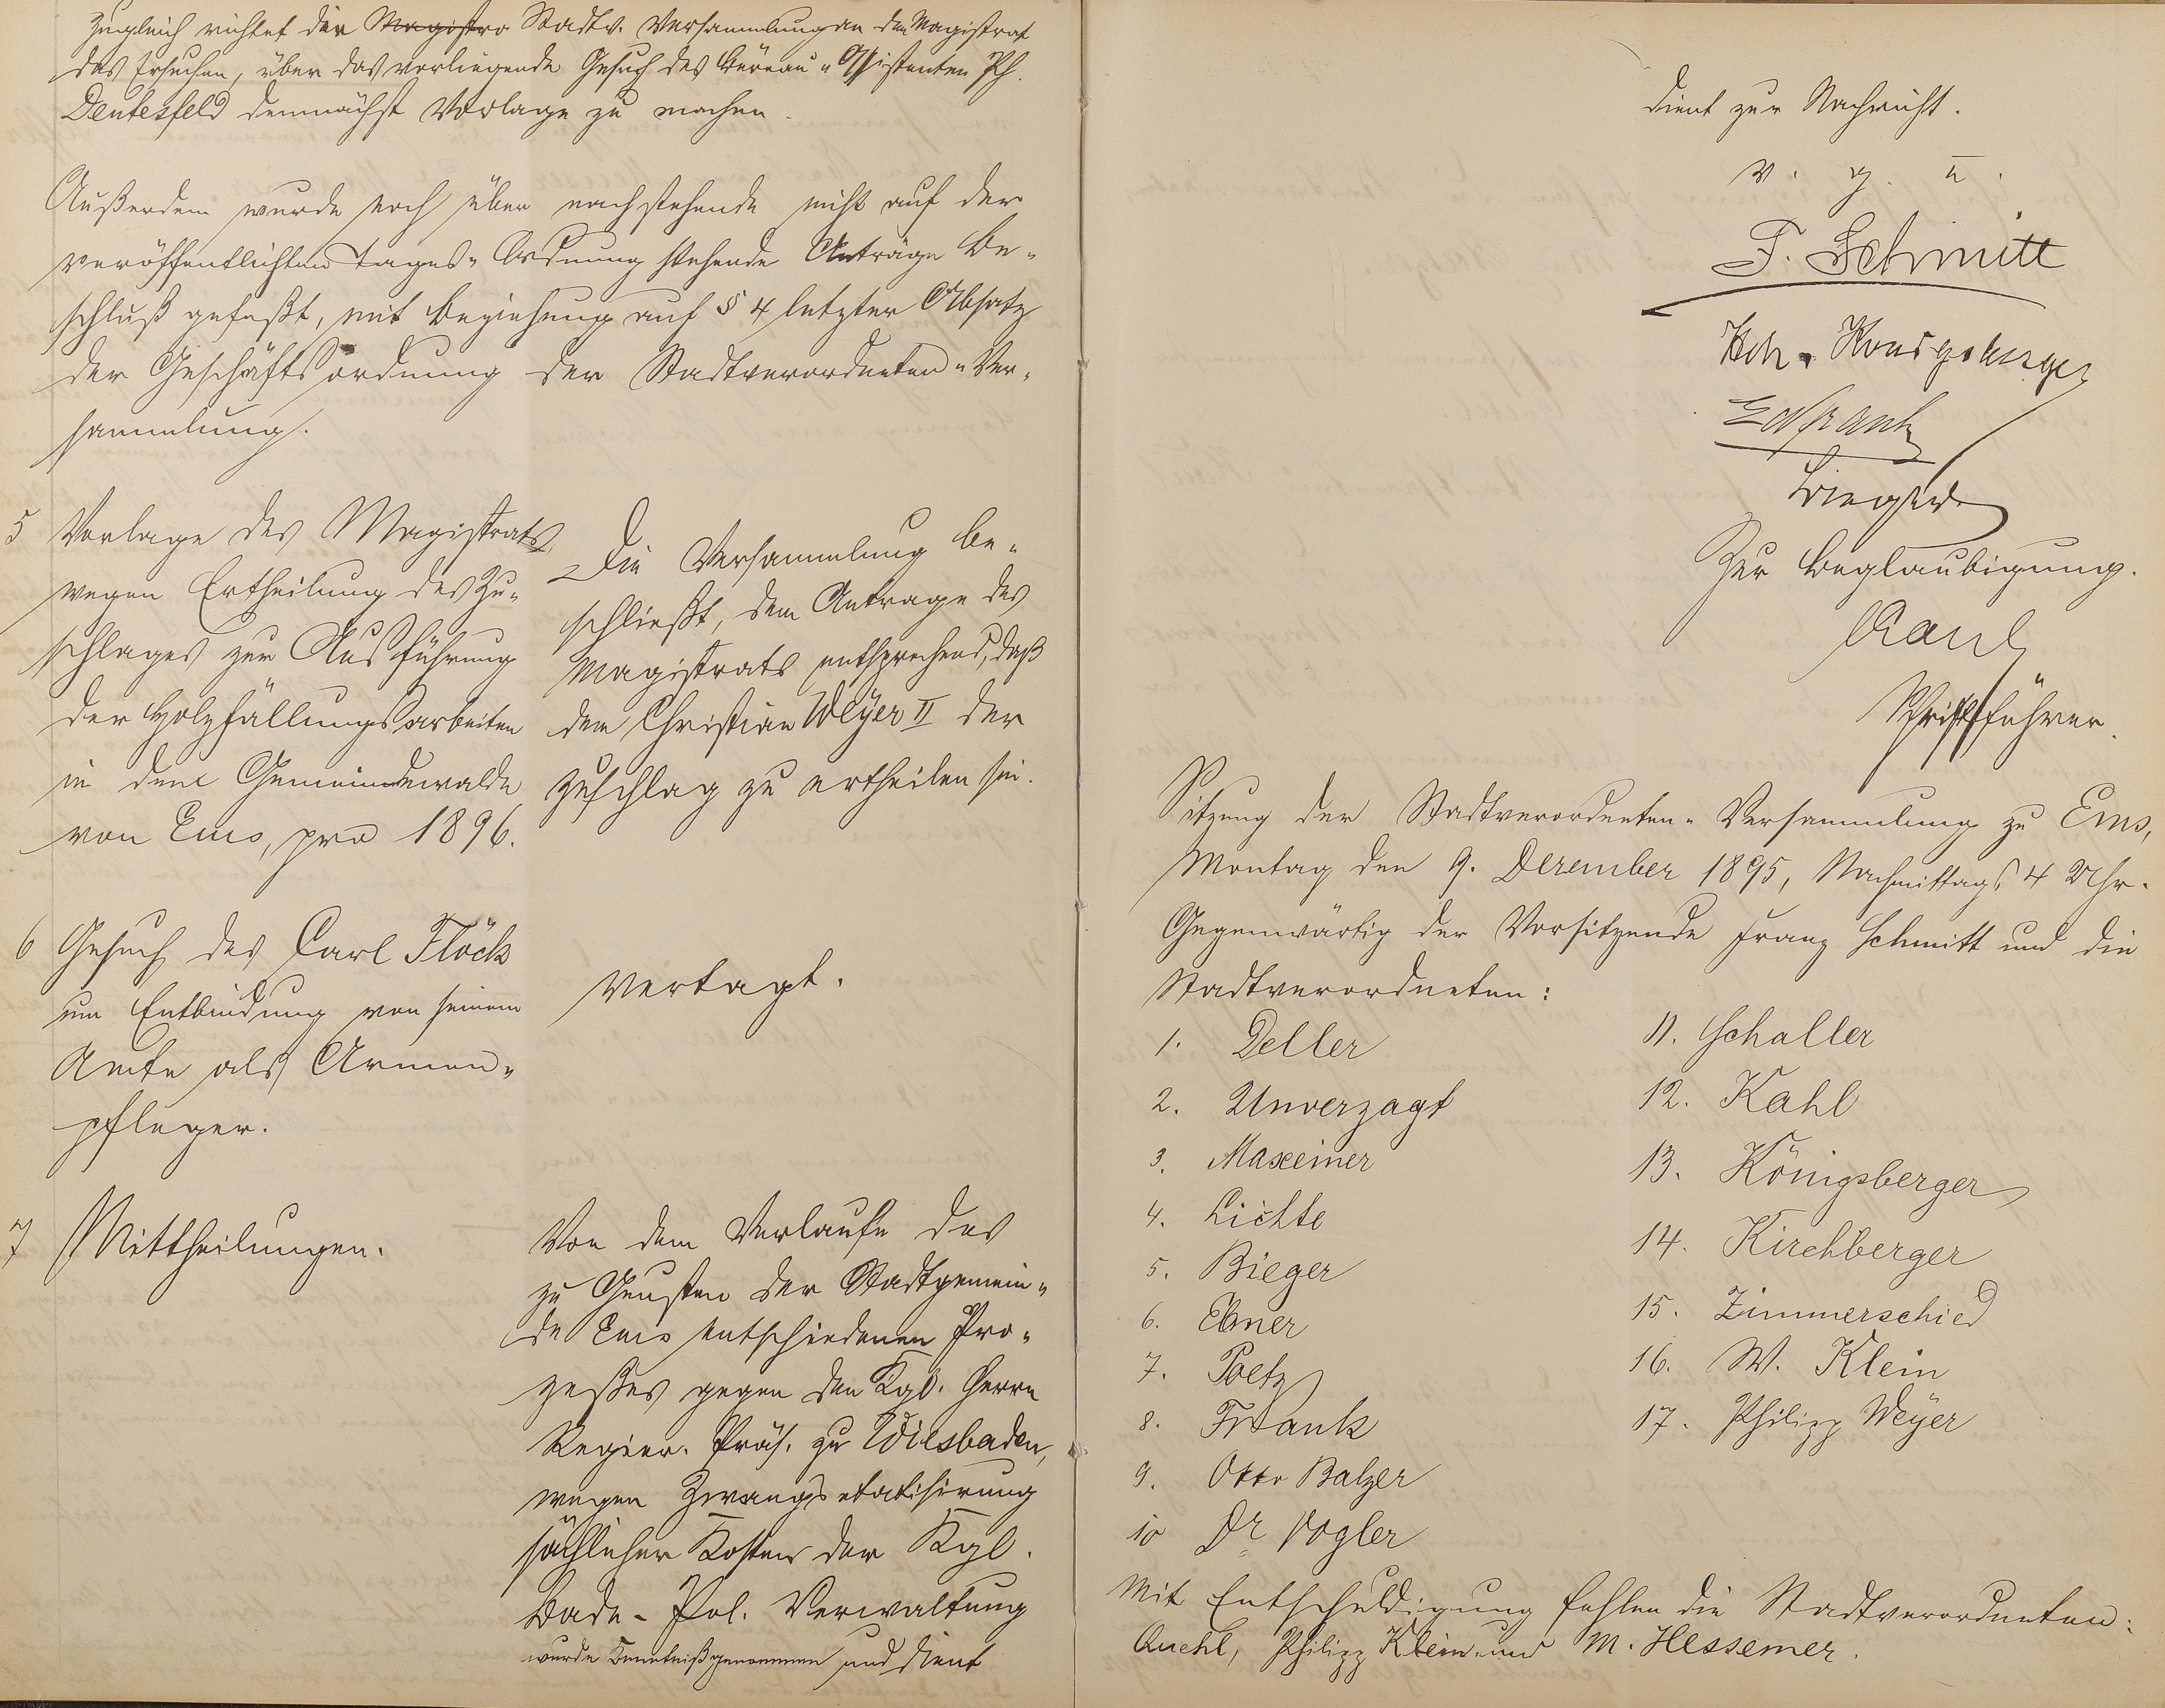 Zugleich richtet die Magistra Stadtv. Versammlung an den Magistrat
das Ersuchen, über das vorliegende Gesuch des Büreau-Assistenten Ph.
Deutesfeld demnächst Vorlage zu machen.
Außerdem wurde noch über nachstehende nicht auf der
veröffentlichten Tages-Ordnung stehende Anträge Be-
schluß gefaßt, mit Beziehung auf § 4 letzter Absatz
der Geschäftsordnung der Stadtverordneten-Ver-
sammlung.
5 Vorlage des Magistrats
wegen Ertheilung des Zu-
schlages zur Ausführung
der Holzfällungsarbeiten
in dem Gemeindewalde
von Ems, pro 1896.
Die Versammlung be-
schließt, dem Antrage des
Magistrats entsprechend, daß
dem Christian Weÿer II der
Zuschlag zu ertheilen sei.
6 Gesuch des Carl Flöck
um Entbindung von seinem
Amte als Armen-
pfleger.
vertagt.
7 Mittheilungen.
Von dem Verlaufe des
zu Gunsten der Stadtgemein-
de Ems entschiedenen Pro-
zeßes gegen den Kgl. Herrn
Regier. Präs. zu Wiesbaden,
wegen Zwangsetatisirung
sächlicher Kosten der Kgl.
Bade-Pol. Verwaltung
wurde Kenntniß genommen und dient
dient zur Nachricht.
v. g. u.
F. Schmitt
Frank
Bieger
Zur Beglaubigung.
Schriftführer.
Sitzung der Stadtverordneten-Versammlung zu Ems,
Montag den 9. Dezember 1895, Nachmittags 4 Uhr.
Gegenwärtig der Vorsitzende Franz Schmitt und die
Stadtverordneten:
1. Deller
2. Unverzagt
3. Maxeiner
4. Lichte
5. Bieger
6. Ebner
7. Poetz
8. Frank
9. Otto Balzer
10 Dr. Vogler
11. Schaller
12. Kahl
13. Königsberger
14. Kirchberger
15. Zimmerschied
16. W. Klein
17. Philipp Weÿer
Mit Entschuldigung fehlen die Stadtverordneten:
Philipp Klein und M. Hessemer.